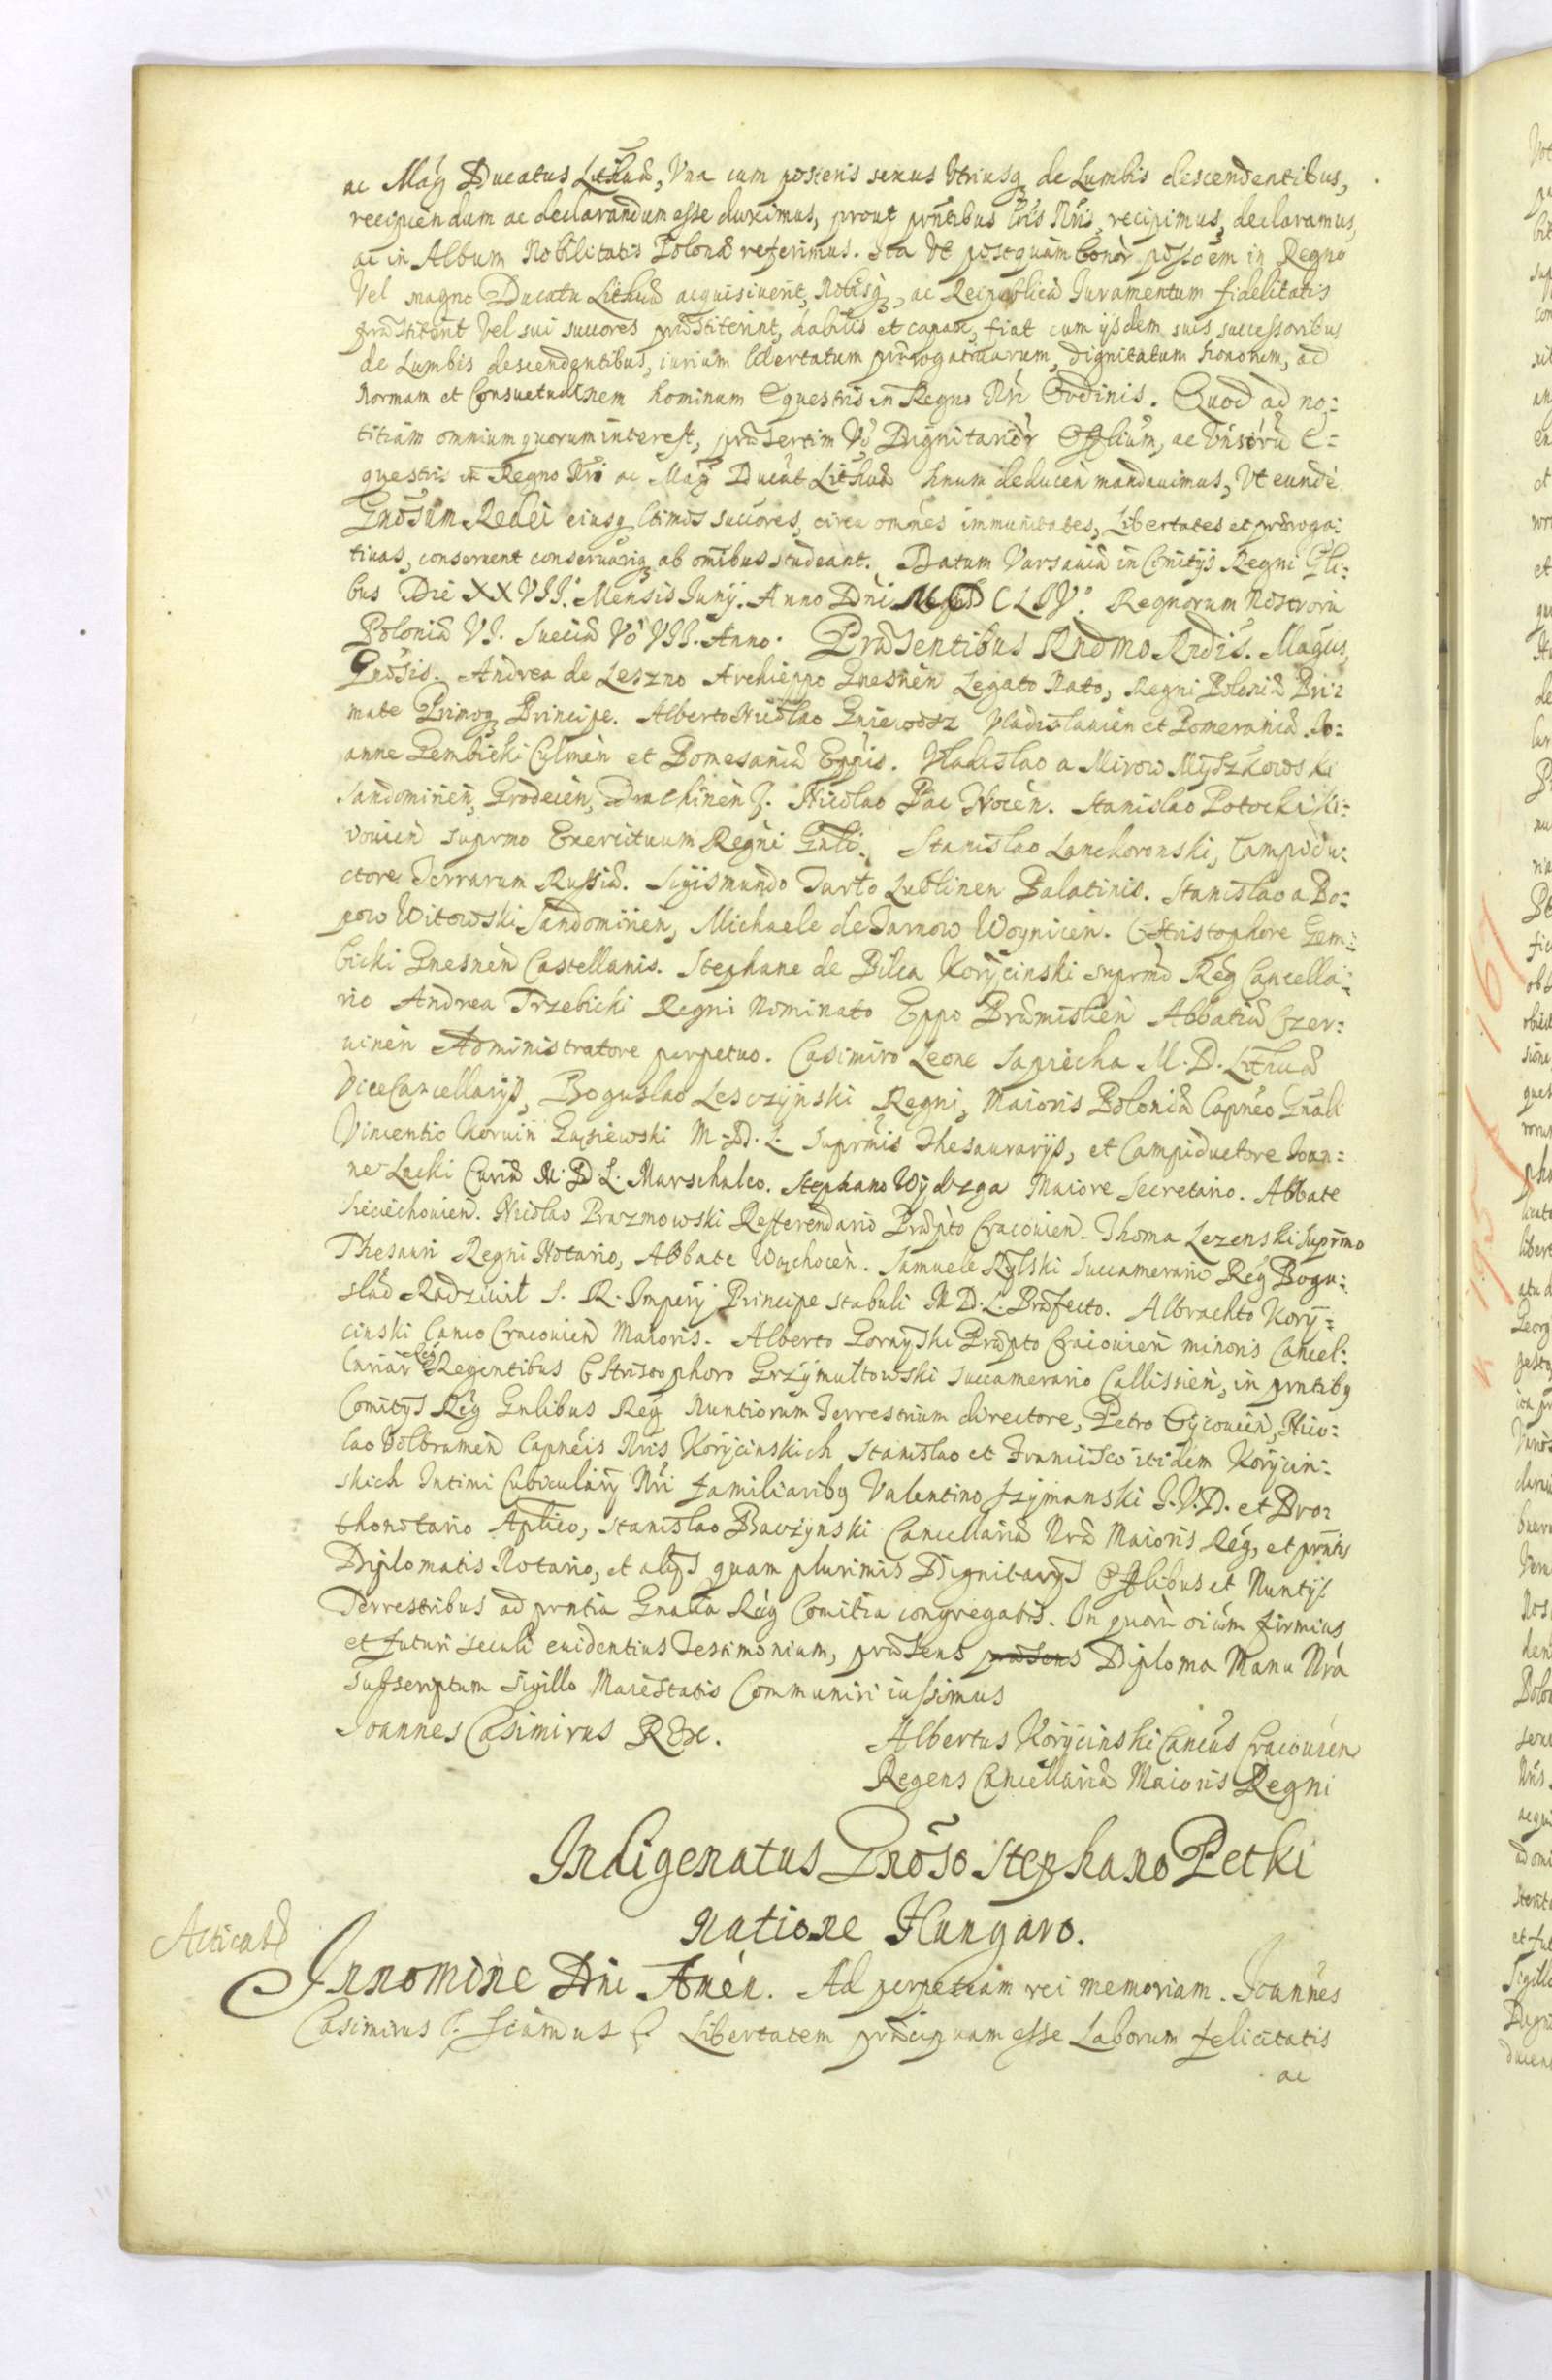 ac Mag Ducatus Lithuæ, Vna cum posteris sexus Vtriusq de Lumbis descendentibus,
recipiendum ac declarandum esse duximus, prout prntibus Lris Nris, recipimus, declaramus,
ac in Album Nobilitatis Polonæ referimus. Ita Vt postquam bonor possoem in Regno
Vel magno Ducatu Lithuæ acquisiuerit, Nobisq, ac Reipublicæ Iuramentum fidelitatis
præstiterit Vel sui succores præstiterint, habilis et capax, fiat cum ijsdem suis successoribus
de Lumbis descendentibus, iurium libertatum prærogatiuarum, dignitatum honorum, ad
Normam et Consuetudinem hominum Equestris in Regno Nri Ordinis. Quod ad no:
titiam omnium quorum interest, præsertim Vo Dignitarior Offlium, ac Vnsoru E=
questris in Regno Nro ac Mag Ducat Lithuæ hnum deducen mandauimus, Vt eunde
Gnosum Redei eiusq ltimos succores, circa omnes immunitates, Libertates et præroga:
tiuas, conseruent conseruariq ab omibus studeant. Datum Varsauiæ in Comitijs Regni Gli:
bus Die XXVII. Mensis Iunij. Anno Dni MDCLIV. Regnorum Nostroru
Poloniæ VI. Sueciæ Vo VII. Anno. Præsentibus Rndmo Rndis. Magcis,
Gnosis. Andrea de Leszno Archieppo Gnesnen Legato Nato, Regni Poloniæ Pri:
mate Primoq Principe. Alberto Nicolao Gniewosz Vladislauien et Pomeraniæ. Io:
anne Gembicki Culmen et Pomesaniæ Eppis. Vladislao a Mirow Myszkowski
Sandomirien, Grodecen, Drachinen. Nicolao Pac Trocen. Stanislao Potocki Ki:
iouien supremo Exercituum Regni Gnli. Stanislao Lanckoronski, Campidu:
ctore Terrarum Russiæ. Sigismundo Tarło Lublinen Palatinis. Stanislao a Bo:
pow Witowski Sandomirien, Michaele de Tarnow Woynicen. Christophoro Gem:
bicki Gnesnen Castellanis. Stephano de Pilca Korycinski supremo Reg Cancella:
rio Andrea Trzebicki Regni Nominato Eppo Præmislien Abbatiæ Czer:
uinen Administratore perpetuo. Casimiro Leone Sapiecha M. D. Lithuæ
ViceCancellarijs, Boguslao Lesczynski Regni, Maioris Poloniæ Capneo Gnali
Vincentio Koruin Gąsiewski M. D. L. Supremis Thesaurarijs, et Campiductore Ioan:
ne Lacki Curiæ M. D. L. Marschalco. Stephano Wydzga Maiore Secretario. Abbate
Sieciechouien. Nicolao Prazmowski Refferendario Præpto Cracouien. Thoma Lezenski Supremo
Thesauri Regni Notario, Abbate Wąchocen. Samuele Rylski Succamerario Reg Bogu:
slao Radziwił S. R. Imperij Principe stabuli M D. L. Præfecto. Albrachto Kory:
cinski Canco Cracouien Maioris. Alberto Gornyski Præpto Cracouien minoris Cancel:
lariar Reg Regentibus Christophoro Grzymułtowski Succamerario Callissien, in prntibq
Comitijs Reg Gnlibus Reg Nuntiorum Terrestrium directore, Petro Oycouien, Nico:
lao Volbramen Capneis Nris Korycinskich Stanislao et Francisco itidem Korycin:
skich Intimi Cubicularij Nri familiaribq Valentino Szymanski I. V. D. et Pro:
thonotario Aplico, Stanislao Baczynski Cancellariæ Nræ Maioris Reg, et prntis
Diplomatis Notario, et alijs quam plurimis Dignitarijs Offlibus et Nuntijs
Terrestribus ad prntia Gnalia Reg Comitia congregatis. In quoru oium firmius
et futuri seculi euidentius Testimonium, præsens præsens Diploma Manu Nra
Subscriptum Sigillo Maiestatis Communiri iussimus
Ioannes Casimirus REx.
Albertus Korycinski Cancus Cracouien
Regens Cancellariæ Maioris Regni
Indigenatus Gnoso Stephano Petki
Natione Hungaro.
Acticata
In nomine Dni Amen. Ad perpetuam rei memoriam. Ioannes
Casimirus &. Sciamus & Libertatem præcipuam esse Laborum felicitatis
ac